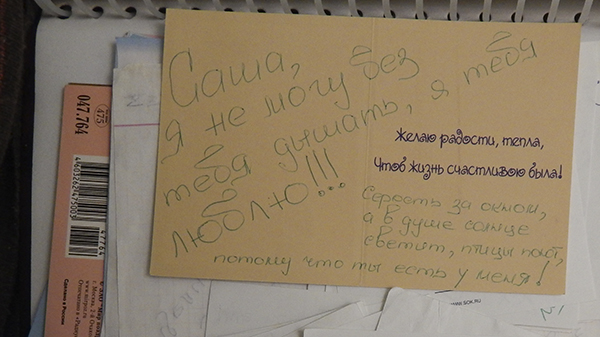 Саша,
я не могу без
тебя дышать, я тебя
люблю!!!...
Желаю радости, тепла,
Чтоб жизнь счастливою была!
Серость за окном,
а в душе солнце
светит, птицы поют,
потому что ты есть у меня!
047.764
475
4603262475035
47764
Сделано в России
N1